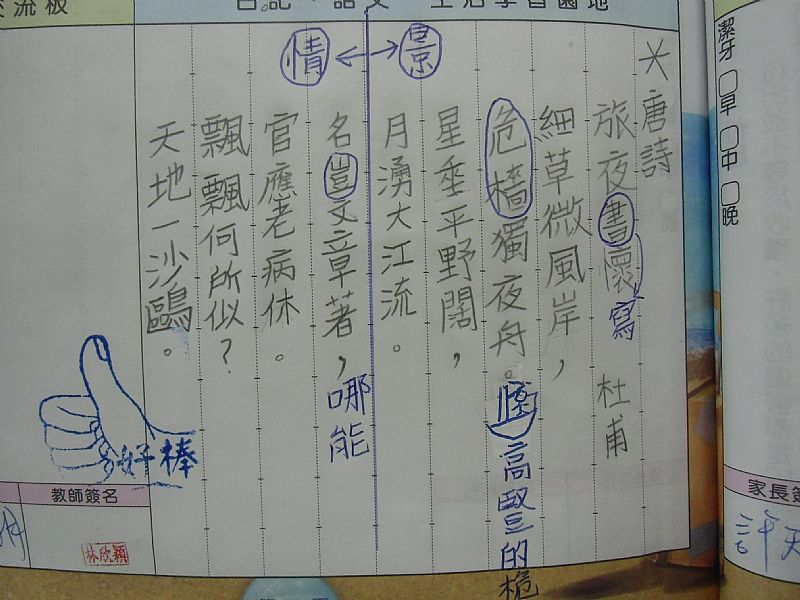 流板
日記、語文、生活學習園地
情 ↔ 景
＊唐詩
旅夜書懷 寫 杜甫
細草微風岸，
危檣獨夜舟。
高豎的桅
星垂平野闊，
月湧大江流。
名豈文章著，哪能
官應老病休。
飄飄何所似？
天地一沙鷗。
好棒
教師簽名
林欣穎
潔牙 □早 □中 □晚
家長簽